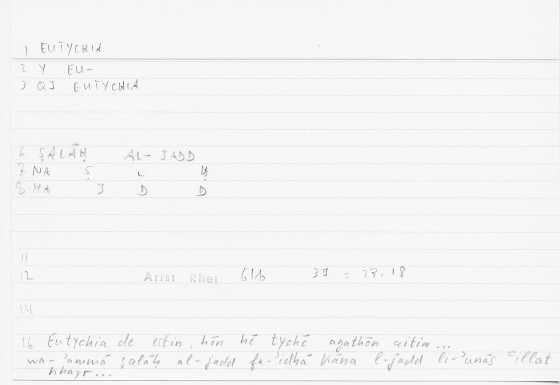 1 EUTYCHIA
2 Y EU-
3 QJ EUTYCHIA
6 ṢALĀḤ AL-JADD
7 NA Ṣ L Ḥ
8 MA J D D
11
12 Arist Rhet 61b 39 = 29.18
14
16 Eutychia de estin, hōn hē tychē agathōn aitia...
wa-ʾammā ṣalāḥ al-jadd fa-ʾidhā kāna l-jadd li-ʾunās ʿillat
khayr...